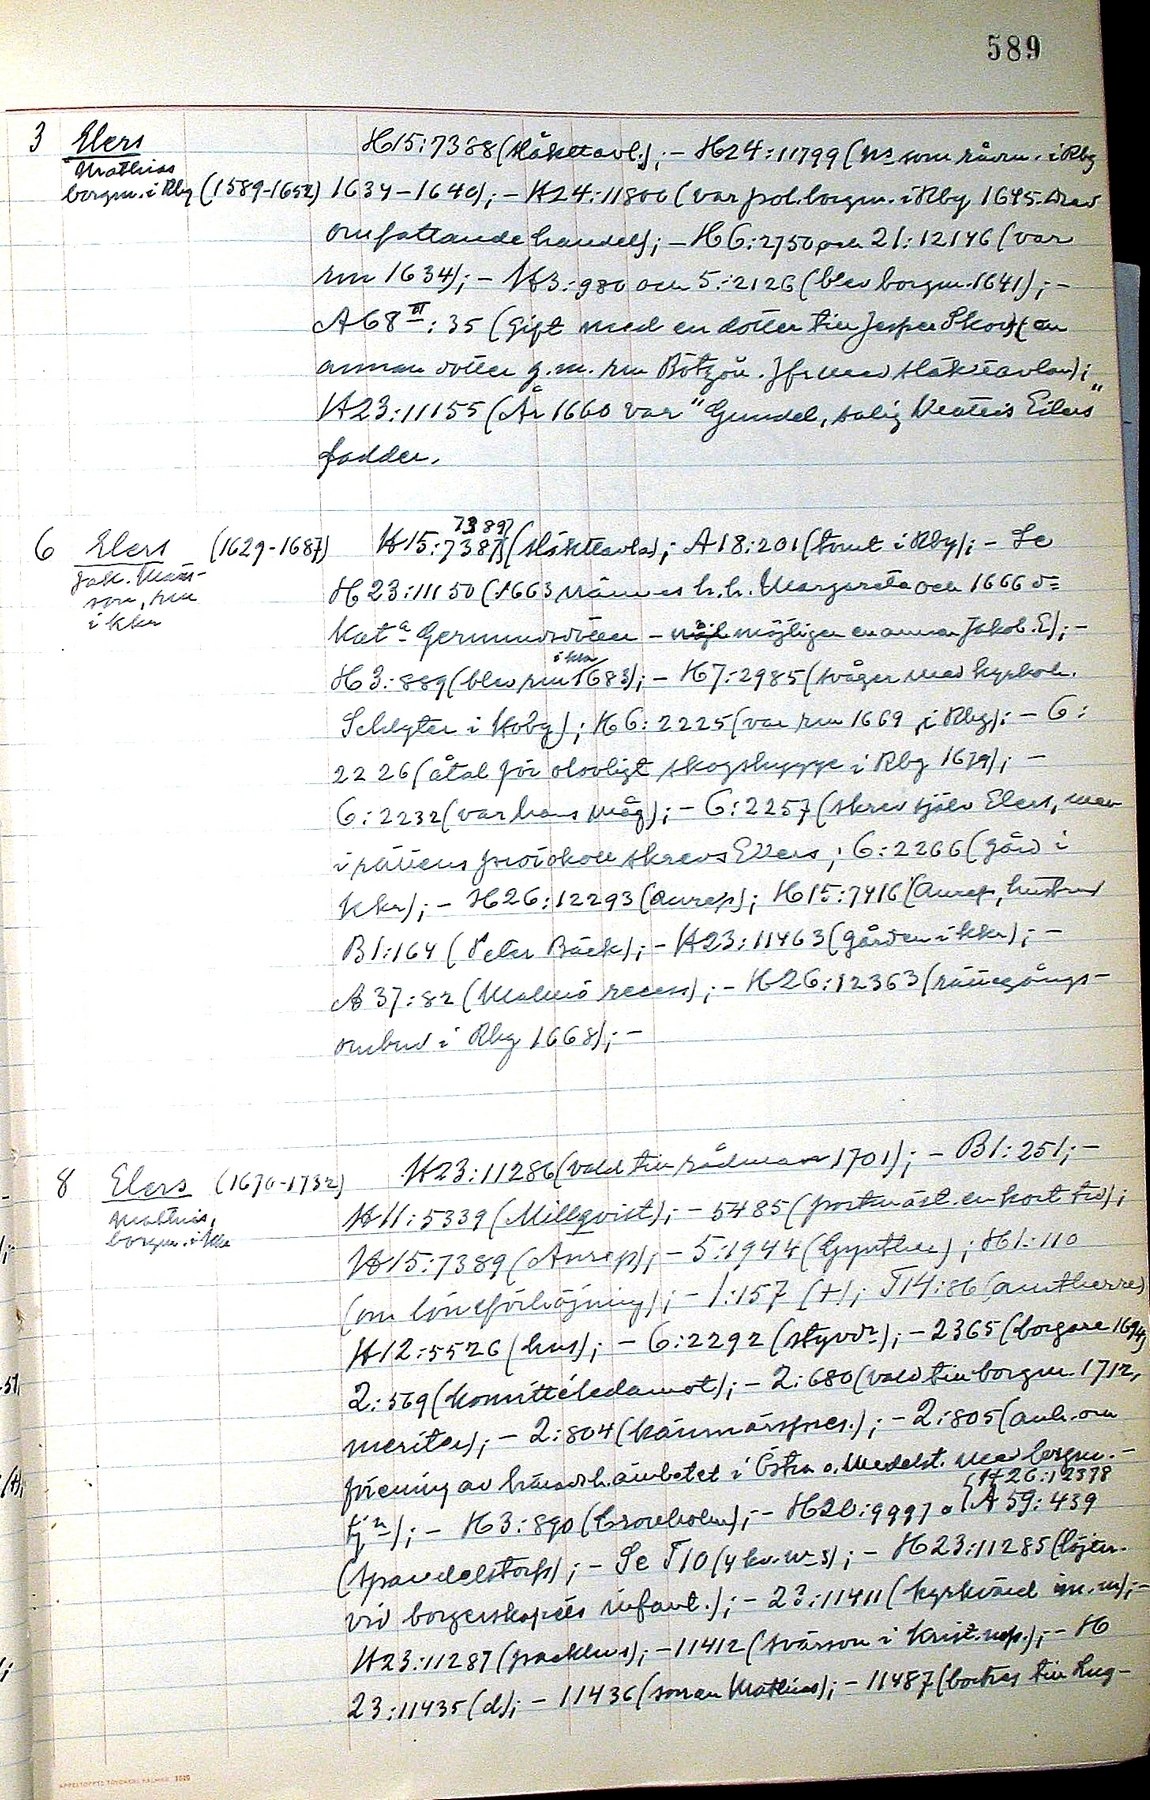 589
3 Elers H15:7388 (släkttavl.); - H24:11799 (Ns som rådm. i Rby
Mathias
borgm. i Rby (1589-1652) 1634-1640); - H24:11800 (var pol. borgm. i Rby 1645. Drev
omfattande handel); - H6:2750 och 21:12146 (var
rm 1634); - H3:980 och 5:2126 (blev borgm. 1641); -
A68 VI: 35 (Gift med en dotter till Jesper Skov (en
annan dotter g.m. rm Bötzön. Jfr med släkttavlan);
H23:11155 (År 1660 var "Gundel, salig Mattis Eilers"
fadder.
6 Elers (1629-1687) H15:7387, 7389) (släkttavla); A18:201 (tomt i Rby); - Se
Jak. Mats-
son, rm
i Kkr
H23:11150 (1663 nämnes h.h. Margareta och 1666 d:o
Kat:a Germundsdotter - möjl möjligen en annan Jakob. E); -
H3:889 (blev rm i kkr 1683); - H7:2985 (svåger med kyrkoh.
Schlyter i Hoby); H6:2225 (var rm 1669 i Rby); - 6:
2226 (åtal för olovligt skogshygge i Rby 1679); -
6:2232 (var hans måg); - 6:2257 (skrev själv Elers, men
i rättens protokoll skrevs Ellers; 6:2266 (gård i
Kkr); - H26:12293 (Anrep); H15:7416 (Anrep, hustru)
B1:164 (Peter Bäck); - H23:11463 (gården i kkr); -
A37:82 (Malmö recess); - H26:12363 (rättegångs-
ombud i Rby 1668); -
8 Elers (1670-1732) H23:11286 (vald till rådman 1701); - B1:251; -
Mathias,
borgm. i Kka
H11:5339 (Millqvist); - 5485 (postmäst. en kort tid);
H15:7389 (Anrep); - 5:1944 (Gynther); H1:110
(om löneförhöjning); - 1:157 (+); T14:86 (amtherre)
H12:5526 (hus); - 6:2292 (styvd:r); - 2365 (borgare 1694);
2:569 (komittéledamot); - 2:680 (vald till borgm. 1712,
meriter); - 2:804 (kämnärspres.); - 2:805 (anh. om
förening av häradsh. ämbetet i Östra o. Medelst. med borgm.-
tj:n); - H3:890 (Cronholm); - H20:9997 o. {H26:12378 A59:439
(Spandelstorp); - Se T10 (4 kv. nr 8); - H23:11285 (löjtn.
vid borgerskapets infant.); - 23:11411 (kyrkvärd m.m); -
H23:11287 (packhus); - 11412 (svärson i Krist.); - H
23:11435 (d); - 11436 (sonen Mathias); - 11487 (bodtes till hug-
APPELTOFFTS TRYCKERI, KALMAR